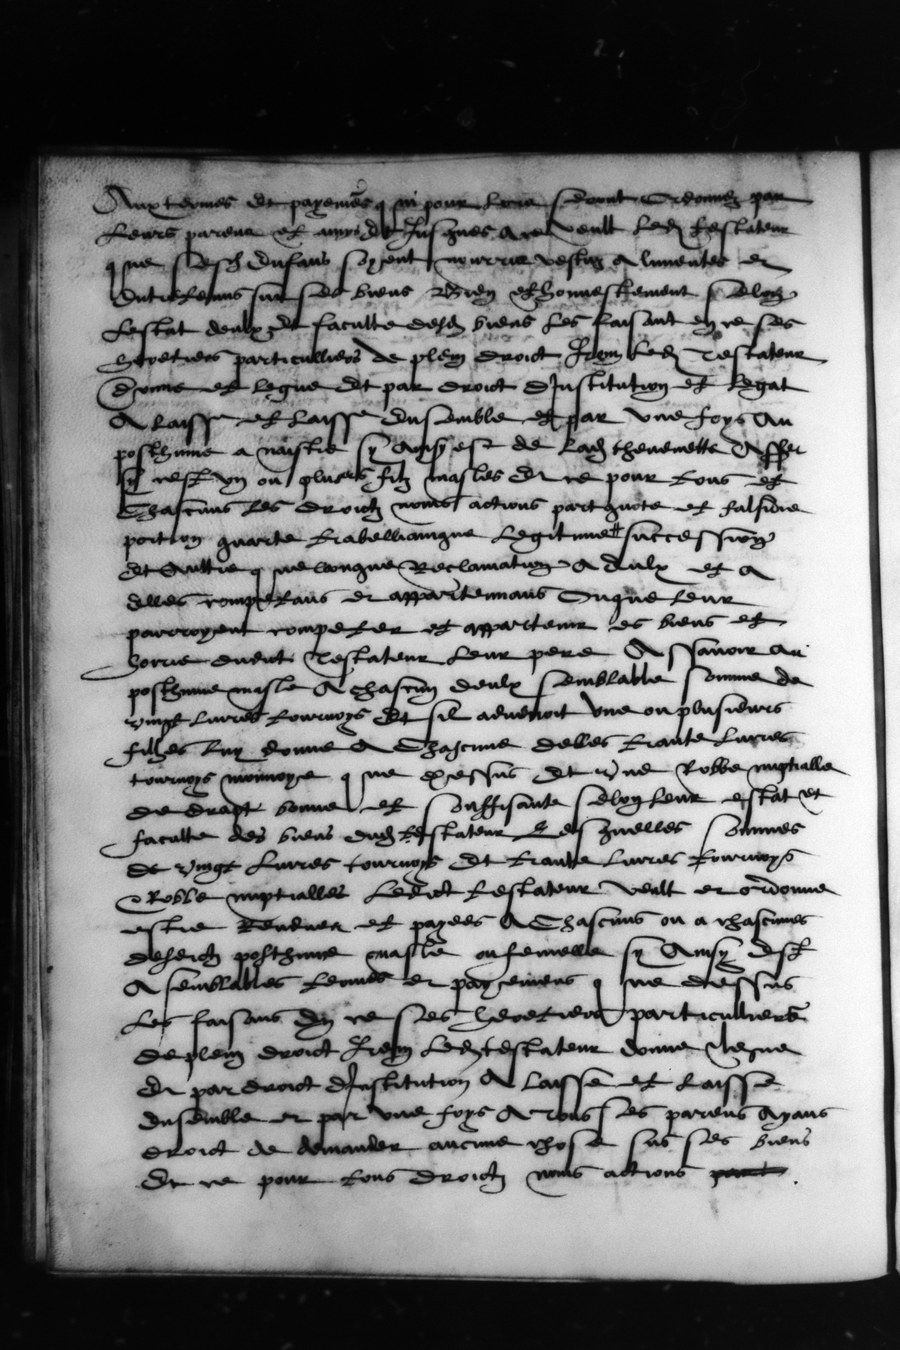 Aux termes et payemens q sur pour leur seront ordonnez par
leurs parens et amys Et jusques a ce veult led testateur
que sesd enfans soyent nourriz vestuz alimentes et
entretenus sur ses biens bien et honnestement selon
lestat deulx et faculte desd biens les faisant en ce ses
heretiers particulliers de plein droict Item led testateur
donne et legue et par droict dInstitution et legat
A laisse et laisse ensemble et par une foys Au
posthume a naistre sy Ainsy est de lad thevenette
sy cest ung ou plusrs filz masles et ce pour tous et
Chascuns les droictz noms actions part quote et falsidie
portion quarte trabellianique legitime succession
et Aultre quelconque Reclamation A eulx et a
elles competans et appartenans Ou que leur
pourroyent competer et appartenir es biens et
hoirie dudit testateur leur pere Assavoir au
posthume masle A chascun deulx semblable somme de
vingt livres tournoys Et sil advenoit une ou plusieurs
filhes luy donne A Chascune delles trante livres
tournoys monnoye que dessus et une Robbe nuptialle
de drapt bonne et souffisante selon leur estat et
faculte des biens dud testateur Lesquelles sommes
de vingt livres tournoys et trante livres tournoys
Robbe nuptialles ledict testateur veult et ordonne
estre Rendues et payees A Chascuns ou a chascunes
desdictz posthume masle ou femelle sy Ainsy est
A semblables termes et payemens que dessus
Les faisans en ce ses heretiers particulliers
de plein droict Item led testateur donne legue
et par droict dInstitution A laisse et laisse
ensemble et par une foys A tous ses parens ayans
droict de demander aucune chose sus ses biens
Et ce pour tous droictz noms actions part